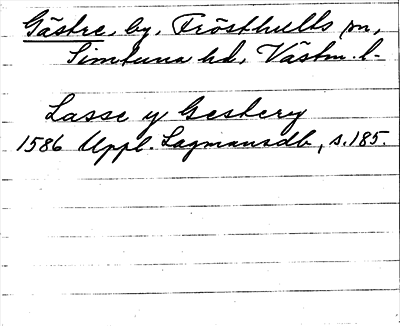 Gästre, by, Frösthults sn,
Simtuna hd, Västm. l.
Lasse y Gestery
1586 Uppl. Lagmansdb, s. 185.